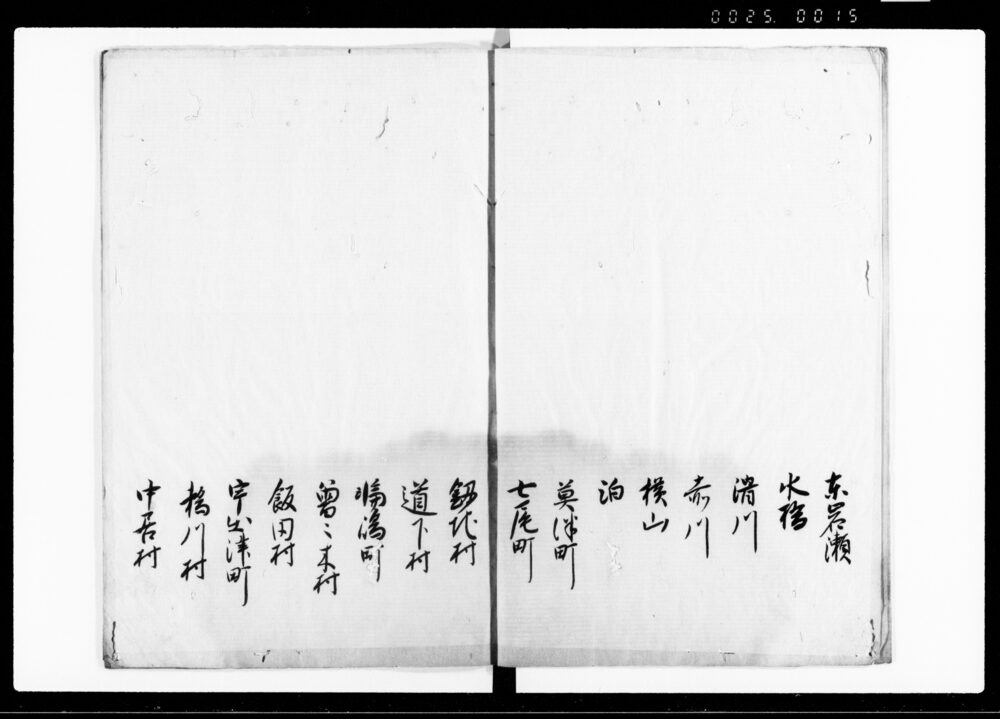 0025. 0015
东岩瀬
水橋
滑川
赤川
横山
泊
英迯町
七尾町
釼地村
道下村
輪嶋町
曽〻木村
飯田村
宇出津町
鵜川村
中居村